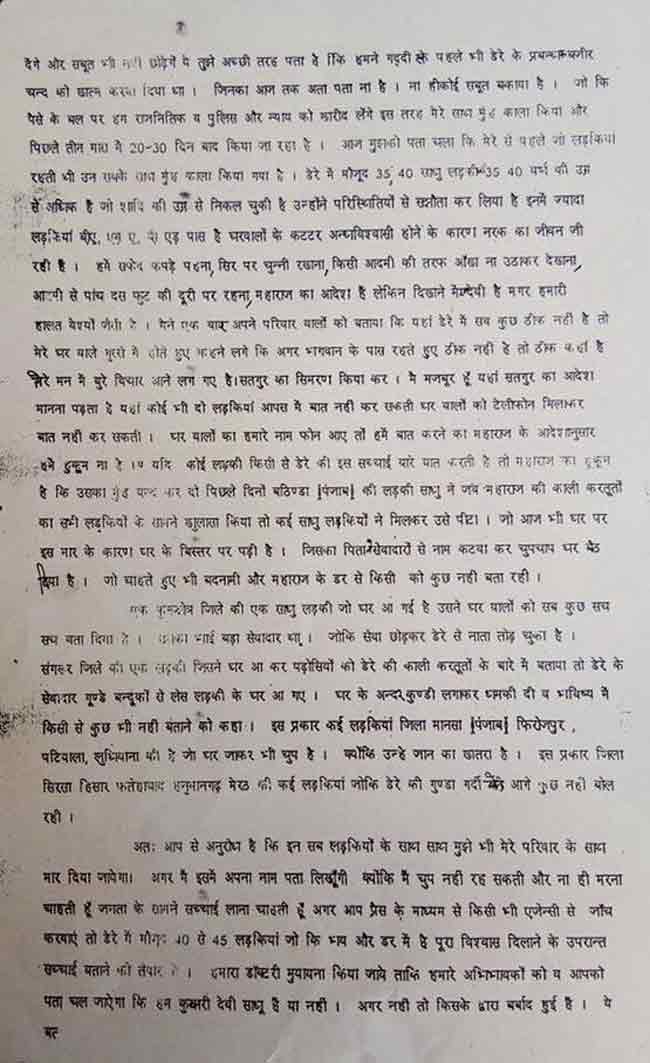 देंगे और सबूत भी नही छोड़ेगें ये तुझे अच्छी तरह पता है कि हमने गद्दी से पहले भी डेरे के प्रबन्धक फकीर
चन्द को खात्म करवा दिया था । जिनका आज तक अता पता ना है । ना हीकोई सबूत बकाया है । जो कि
पैसे के बल पर हम राजनितिक व पुलिस और न्याय को खारीद लेंगे इस तरह मेरे साथ मुंह काला किया और
पिछले तीन मास मे 20-30 दिन बाद किया जा रहा है । आज मुझको पता चला कि मेरे से पहले जो लड़किया
रहती थी उन सबके साथ मुंह काला किया गया है । डेरे में मौजूद 35, 40 साधु लड़की 35 40 वर्ष की उम्र
से अधिक है जो शादि की उम्र से निकल चुकी है उन्होंने परिस्थितियों से समझौता कर लिया है इनमें ज्यादा
लड़कियां बीए, एम ए, बी एड़ पास है घरवालों के कटटर अन्धविश्वासी होने के कारण नरक का जीवन जी
रही है । हमें सफेद कपड़े पहना, सिर पर चुन्नी रखाना, किसी आदमी की तरफ आँखा ना उठाकर देखाना,
आदमी से पांच दस फुट की दूरी पर रहना, महाराज का आदेश है लेकिन दिखाने में देवी है मगर हमारी
हालत वेश्यों जैसी है । मैने एक बार अपने परिवार वालों को बताया कि यहां डेरे में सब कुछ ठीक नही है तो
मेरे घर वाले गुस्से में होते हुए कहने लगे कि अगर भगवान के पास रहते हुए ठीक नही है तो ठीक कहां है
तेरे मन में बुरे विचार आने लग गए है। सतगुर का सिमरण किया कर । मै मजबूर हूँ यहां सतगुर का आदेश
मानना पड़ता है यहां कोई भी दो लड़कियां आपस में बात नही कर सकती घर वालों को टेलीफोन मिलाकर
बात नही कर सकती । घर वालों का हमारे नाम फोन आए तो हमें बात करने का महाराज के आदेशानुसार
हमे हुक्म ना है । यदि कोई लड़की किसी से डेरे की इस सच्चाई बारे बात करती है तो महाराज का हुक्म
है कि उसका मुंह बन्द कर दो पिछले दिनों बठिण्डा [पंजाब] की लड़की साधु ने जब महाराज की काली करतूतों
का सभी लड़कियों के सामने खुलासा किया तो कई साधु लड़कियों ने मिलकर उसे पीटा । जो आज भी घर पर
इस मार के कारण घर के बिस्तर पर पड़ी है । जिसका पिता ने सेवादारों से नाम कटवा कर चुपचाप घर बैठ
दिया है । जो चाहते हुए भी बदनामी और महाराज के डर से किसी को कुछ नही बता रही ।
एक कुरूक्षेत्र जिले की एक साधु लड़की जो घर आ गई है उसने घर वालों को सब कुछ सच
सच बता दिया है । उसका भाई बड़ा सेवादार था । जोकि सेवा छोड़कर डेरे से नाता तोड़ चुका है ।
संगरूर जिले की एक लड़की जिसने घर आ कर पड़ोसियों को डेरे की काली करतूतों के बारे में बताया तो डेरे के
सेवादार गूण्डे बन्दूकों से लेस लड़की के घर आ गए । घर के अन्दर कुण्डी लगाकर धमकी दी व भविष्य में
किसी से कुछ भी नही बताने को कहा । इस प्रकार कई लड़कियां जिला मानसा [पंजाब] फिरोजपुर,
पटियाला, लुधियाना की है जो घर जाकर भी चुप है । क्योंकि उन्हे जान का खातरा है । इस प्रकार जिला
सिरसा हिसार फतेहाबाद हनुमानगढ़ मेरठ की कई लड़कियां जोकि डेरे की गुण्डा गर्दी के आगे कुछ नही बोल
रही ।
अतः आप से अनुरोध है कि इन सब लड़कियों के साथ साथ मुझे भी मेरे परिवार के साथ
मार दिया जायेगा। अगर मै इसमें अपना नाम पता लिखूँगी क्योंकि मै चुप नही रह सकती और ना ही मरना
चाहती हूँ जनता के सामने सच्चाई लाना चाहती हूँ अगर आप प्रैस के माध्यम से किसी भी एजेन्सी से जाँच
करवाएं तो डेरे में मौजूद 40 से 45 लड़कियां जो कि भय और डर में है पूरा विश्वास दिलाने के उपरान्त
सच्चाई बताने को तैयार है । हमारा डॉक्टरी मुयायना किया जाये ताकि हमारे अभिभावकों को व आपको
पता चल जाएगा कि हम कुमारी देवी साधू है या नही । अगर नही तो किसके द्वारा बर्बाद हुई है । ये
बत